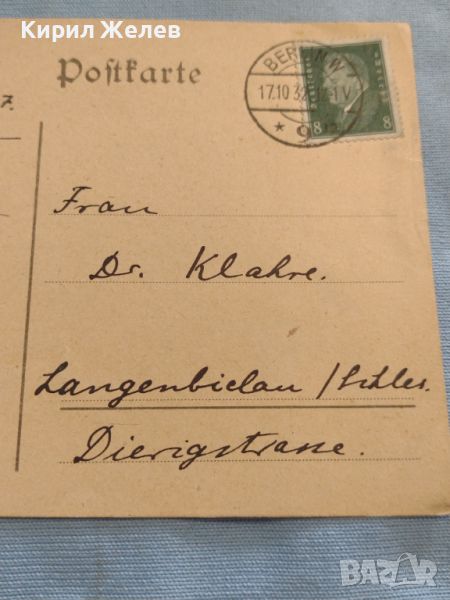 Кирил Желев
Postkarte
BERLIN NW
17.10.32
* 9
8 8
7.
Frau
Dr. Klahre.
Langenbielau /Schles.
Dierigstrasse.
BAZAR